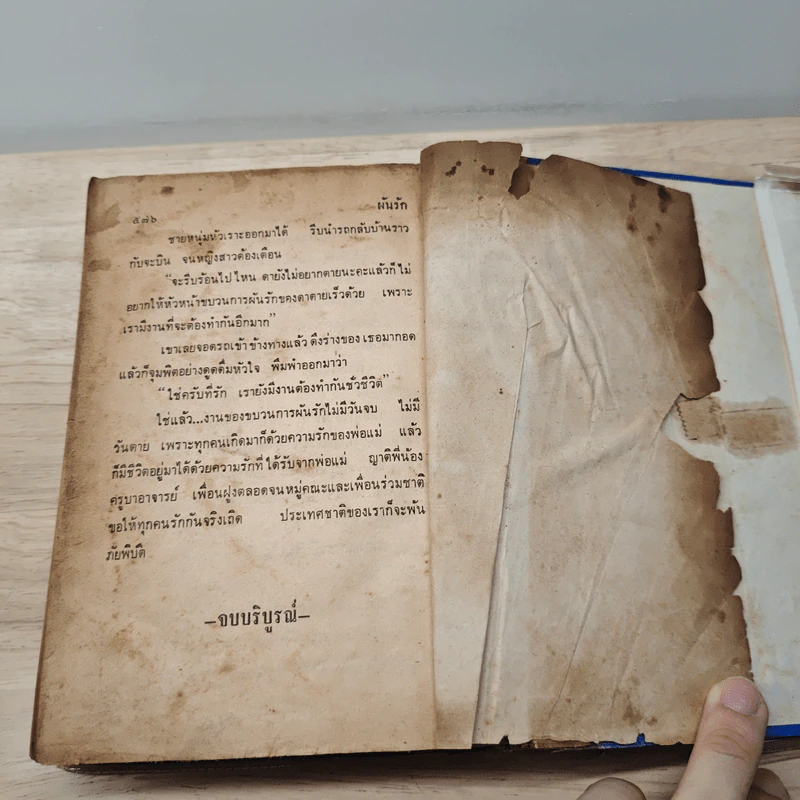 ๕๗๖ ผันรัก
ชายหนุ่มหัวเราะออกมาได้ รีบนำรถกลับบ้านราว
กับจะบิน จนหญิงสาวต้องเตือน
“จะรีบร้อนไปไหน ดายังไม่อยากตายนะคะแล้วก็ไม่
อยากให้หัวหน้าขบวนการผันรักของดาตายเร็วด้วย เพราะ
เรามีงานที่จะต้องทำกันอีกมาก”
เขาเลยจอดรถเข้าข้างทางแล้ว ดึงร่างของเธอมากอด
แล้วก็จุมพิตอย่างดูดดื่มหัวใจ พึมพำออกมาว่า
“ใช่ครับที่รัก เรายังมีงานต้องทำกันชั่วชีวิต”
ใช่แล้ว...งานของขบวนการผันรักไม่มีวันจบ ไม่มี
วันตาย เพราะทุกคนเกิดมาก็ด้วยความรักของพ่อแม่ แล้ว
ก็มีชีวิตอยู่มาได้ด้วยความรักที่ได้รับจากพ่อแม่ ญาติพี่น้อง
ครูบาอาจารย์ เพื่อนฝูงตลอดจนหมู่คณะและเพื่อนร่วมชาติ
ขอให้ทุกคนรักกันจริงเถิด ประเทศชาติของเราก็จะพ้น
ภัยพิบัติ
—จบบริบูรณ์—